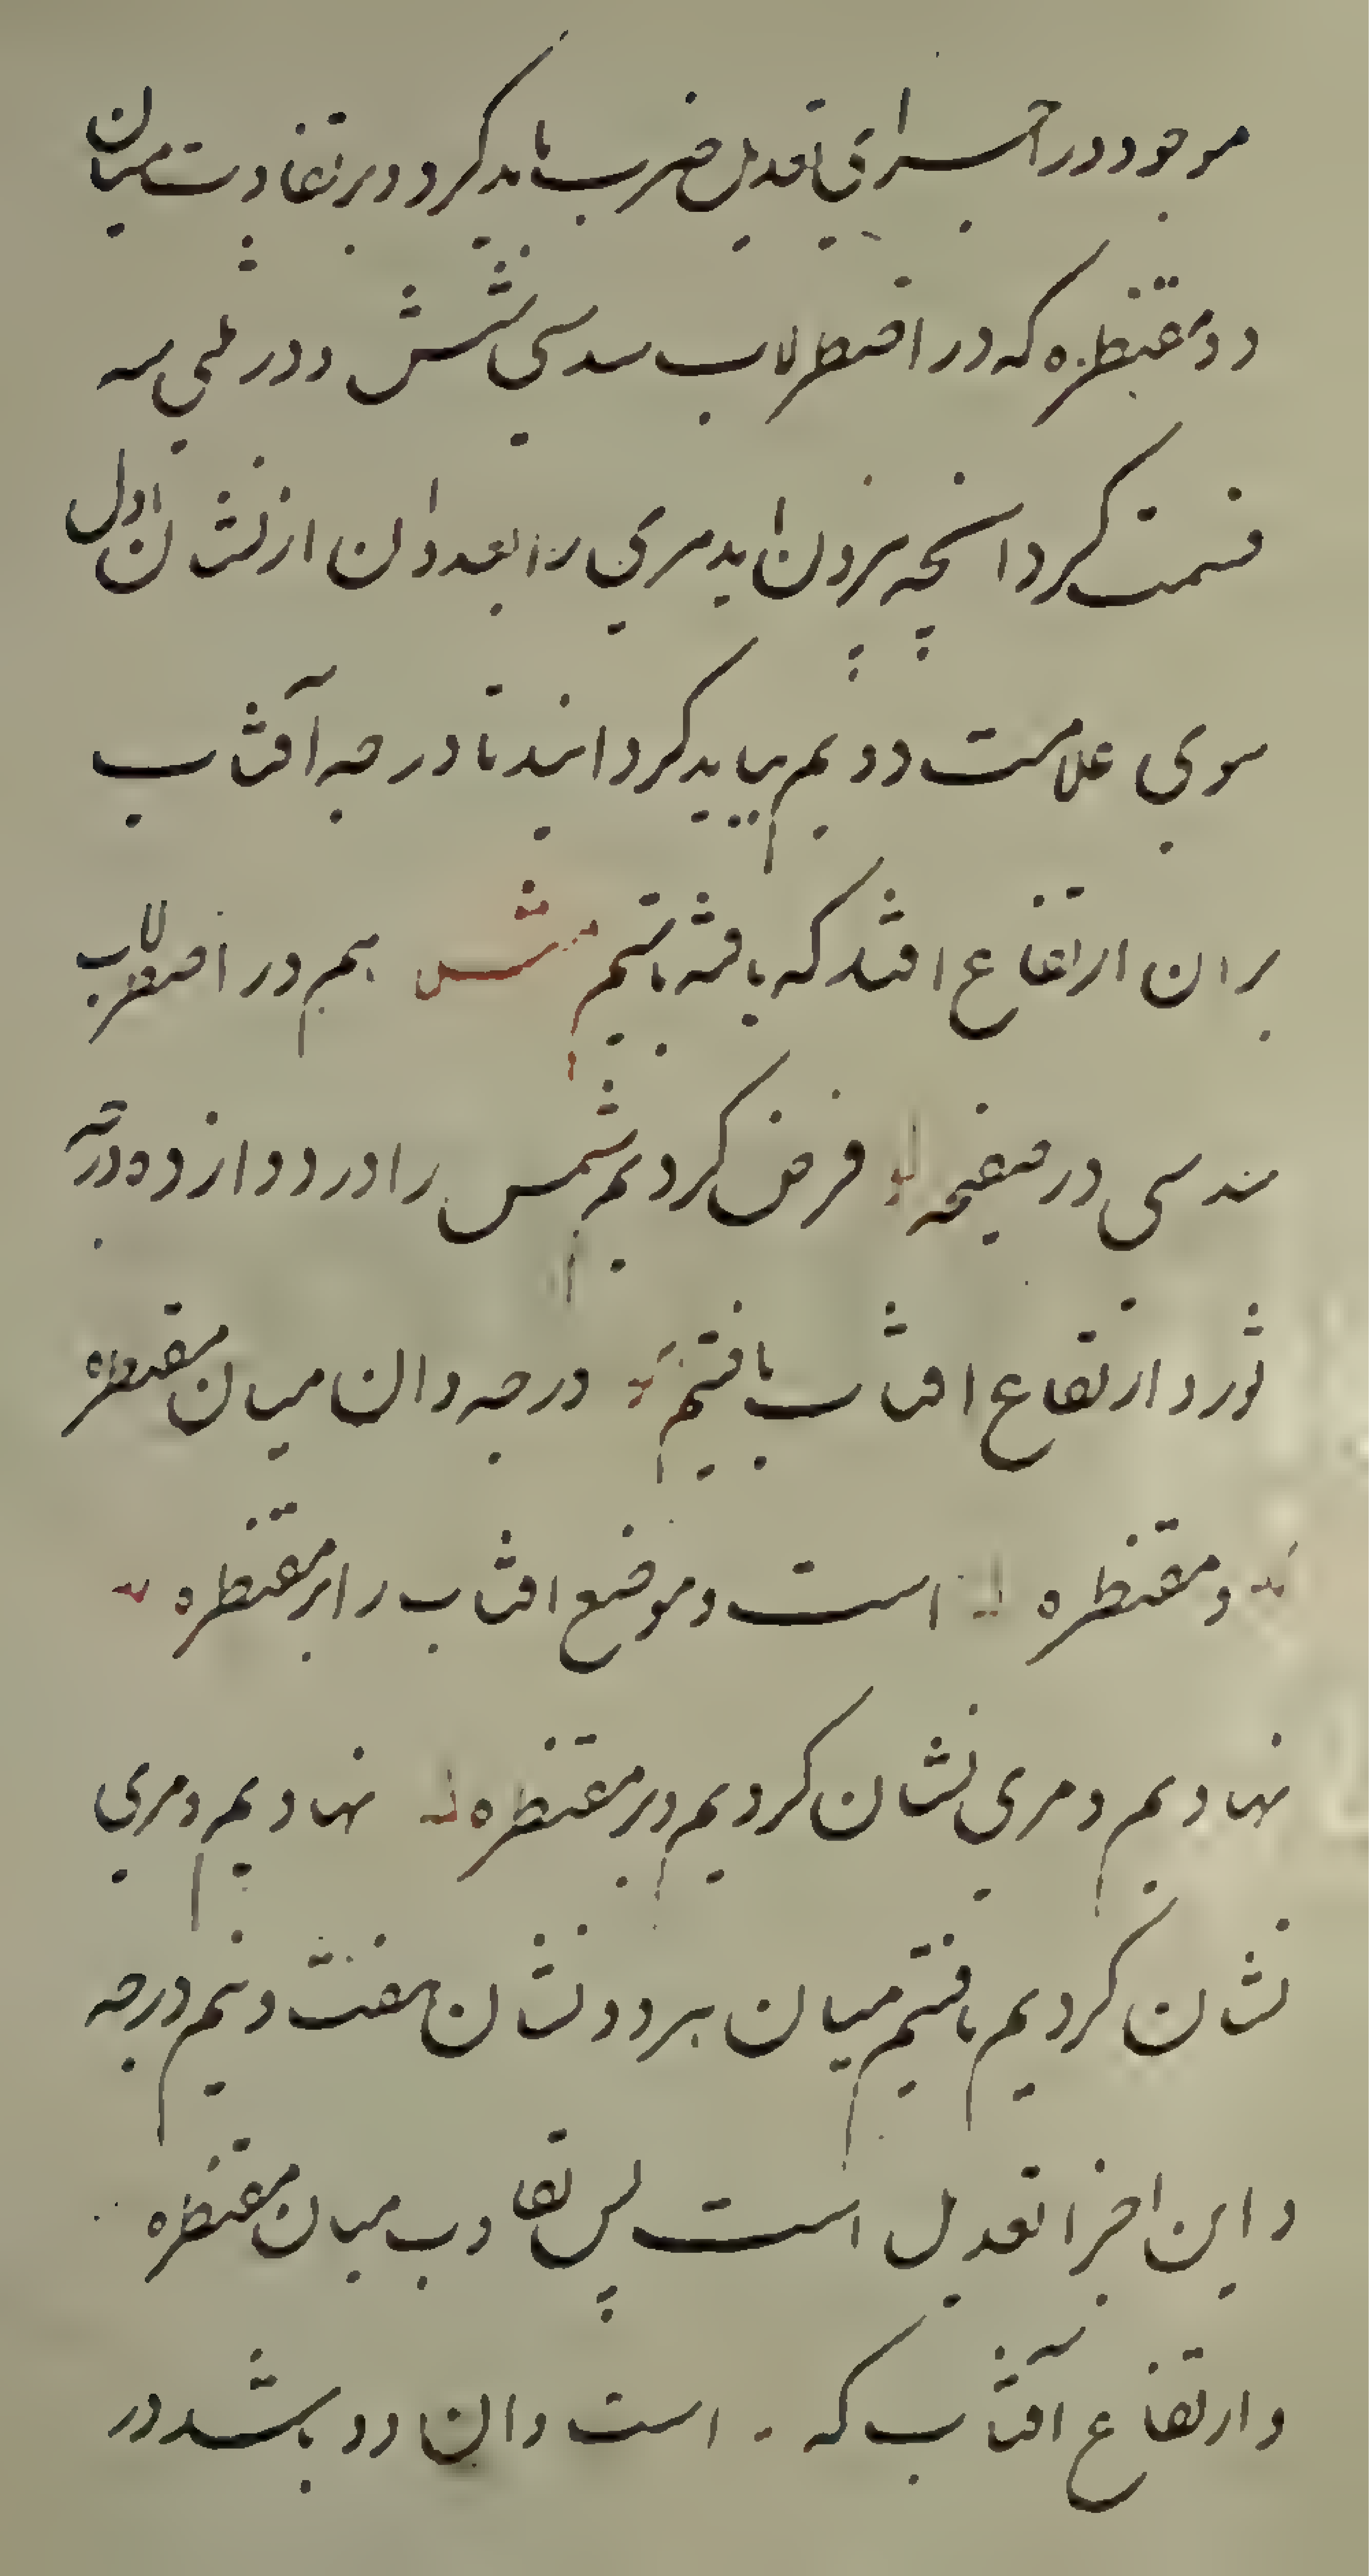 موجود در اجزای تعدیل ضرب باید کرد و بر تفاوت میان
دو مقنطره که در اصطرلاب سدسی شش و در ثلثی سه
قسمت کرد انچه بیرون اید مری را بعدد ان از نشان اول
سوی علامت دویم بباید کردانید تا درجه آفتاب
بران ارتفاع افتد که یافته باشیم مثال هم در اصطرلاب
سدسی در صفیحه لو فرض کردیم شمس را در دوازده درجه
ثور و ارتفاع افتاب یافتیم درجه و ان میان مقنطره
و مقنطره است و موضع افتاب را بر مقنطره
نهادیم و مری نشان کردیم و بر مقنطره نهادیم و مری
نشان کردیم یافتیم میان هر دو نشان هفت و نیم درجه
و این اجزا تعدیل است پس تفاوت میان مقنطره
و ارتفاع آفتاب که است و ان دو باشد در